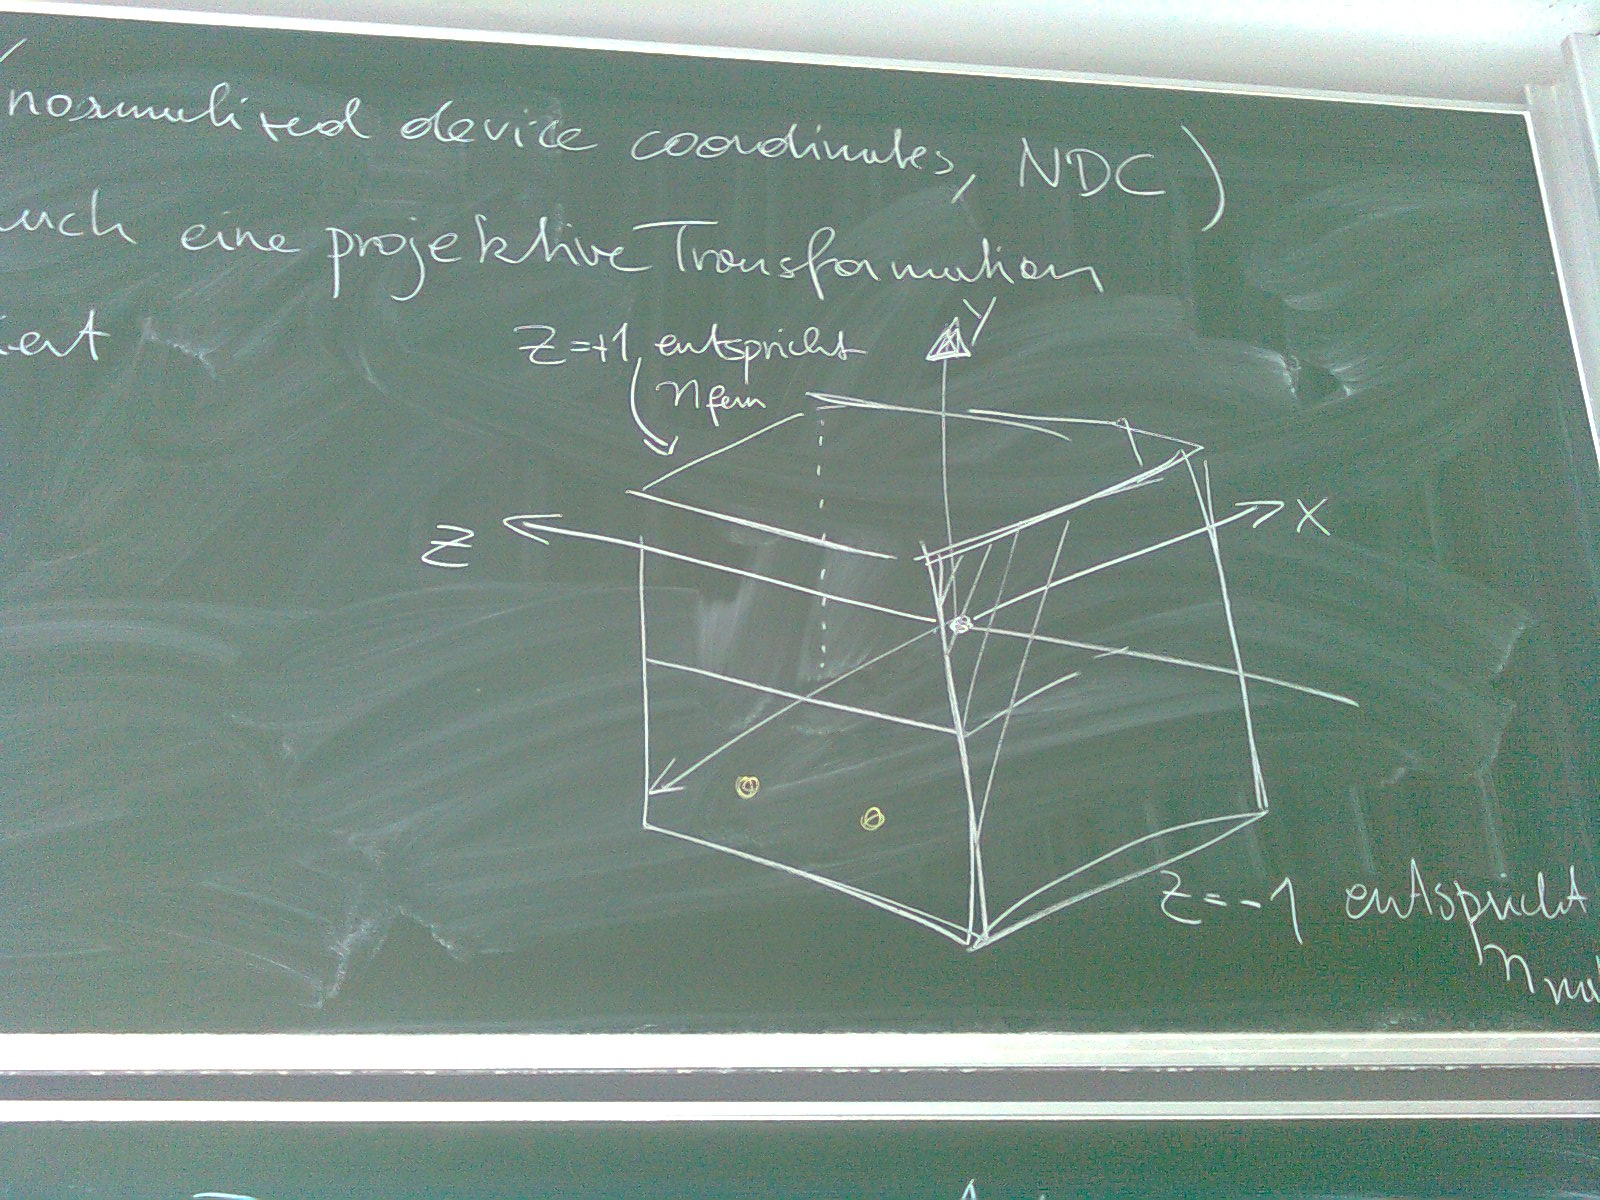 (normalized device coordinates, NDC)
auch eine projektive Transformation
z=+1 entspricht
n fern
Y
X
Z
z=-1 entspricht